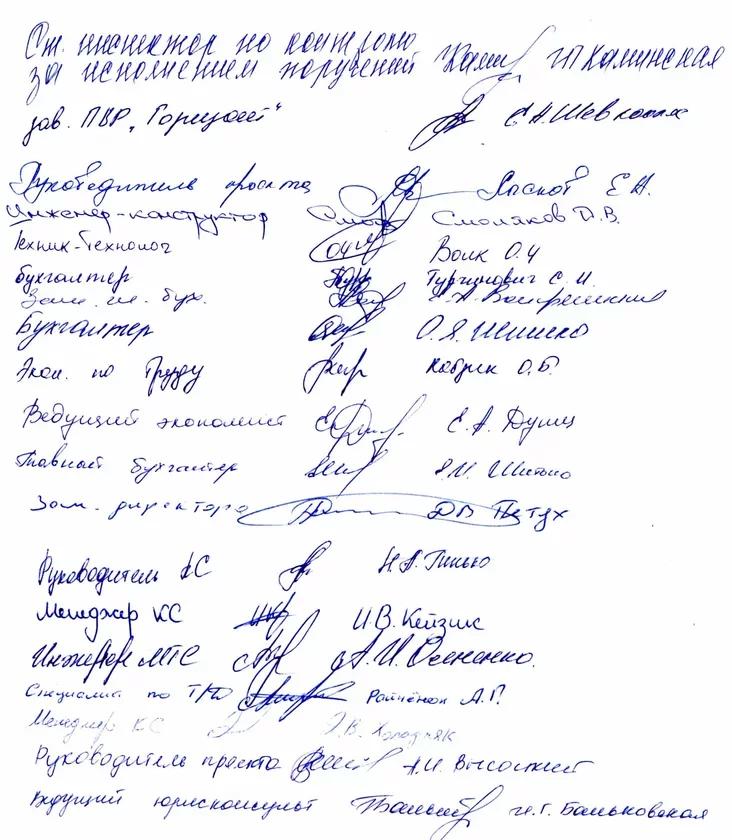 Ст. инспектор по контролю
за исполнением поручений И.П. Каминская
зав. ПВР „Горизонт“ Е.Н. Шевко
Руководитель проекта Ласкот Е.А.
Инженер-конструктор Смоляков Д.В.
Техник-технолог Волк О.Ч
бухгалтер Тургинович С.И.
Зам. гл. бух.
Бухгалтер О.Я. Шишко
Экон. по труду Кабрик О.Б.
Ведущий экономист Е.А. Дущиц
Главный бухгалтер Я.И. Шитько
Зам. директора ДВ Петух
Руководитель КС Н.А. Пинью
Менеджер КС И.В. Кейзик
Инженер МТС А.И.
Специалист по А.Г.
Менеджер КС Э.В. Холодняк
Руководитель проекта А.И. Высоцкий
Ведущий юрисконсульт И.Г. Баньковская